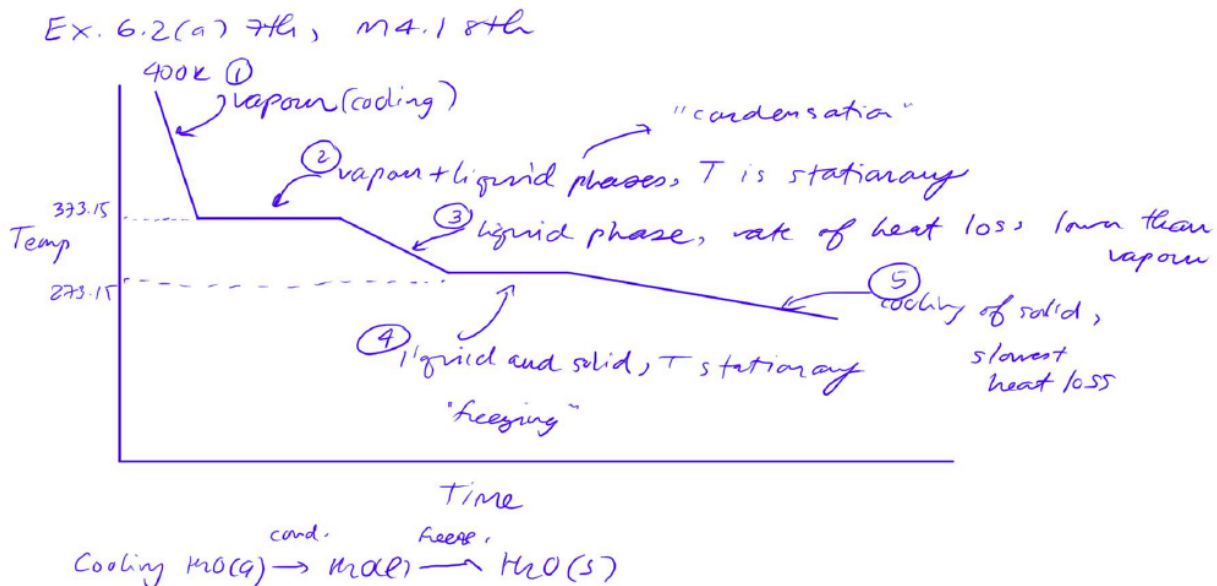 Ex. 6.2(a) 7th, M4.1 8th
400K ①
vapour (cooling)
"condensation"
② vapour + liquid phases, T is stationary
373.15
③ liquid phase, rate of heat loss lower than
vapour
Temp
273.15
⑤
cooling of solid,
slowest
heat loss
④ liquid and solid, T stationary
"freezing"
Time
cond. freeze.
Cooling H2O(g) → H2O(l) → H2O(s)